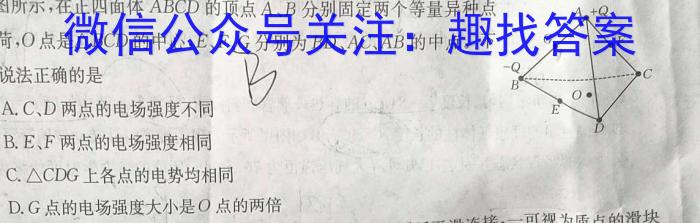 图所示,在正四面体 ABCD 的顶点 A、B 分别固定两个等量异种点
微信公众号关注:趣找答案
荷,O 点是 的中 E、 G 分别为 BD、AC、AB 的中
说法正确的是
B
A. C、D 两点的电场强度不同
B. E、F 两点的电场强度相同
C. △CDG 上各点的电势均相同
D. G 点的电场强度大小是 O 点的两倍
A +Q
-Q
B
C
O
E
D
滑连接,一可视为质点的滑块